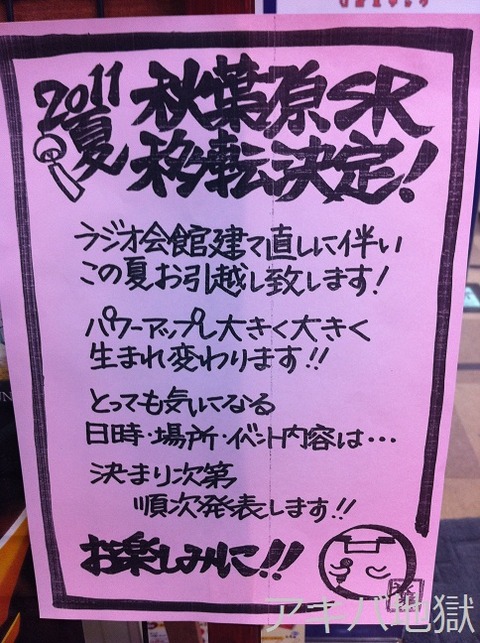 2011
夏
秋葉原SR
移転決定!
ラジオ会館建て直しに伴い
この夏お引越し致します!
パワーアップし大きく大きく
生まれ変わります!!
とっても気になる
日時・場所・イベント内容は・・・
決まり次第
順次発表します!!
お楽しみに!!
アキバ地獄